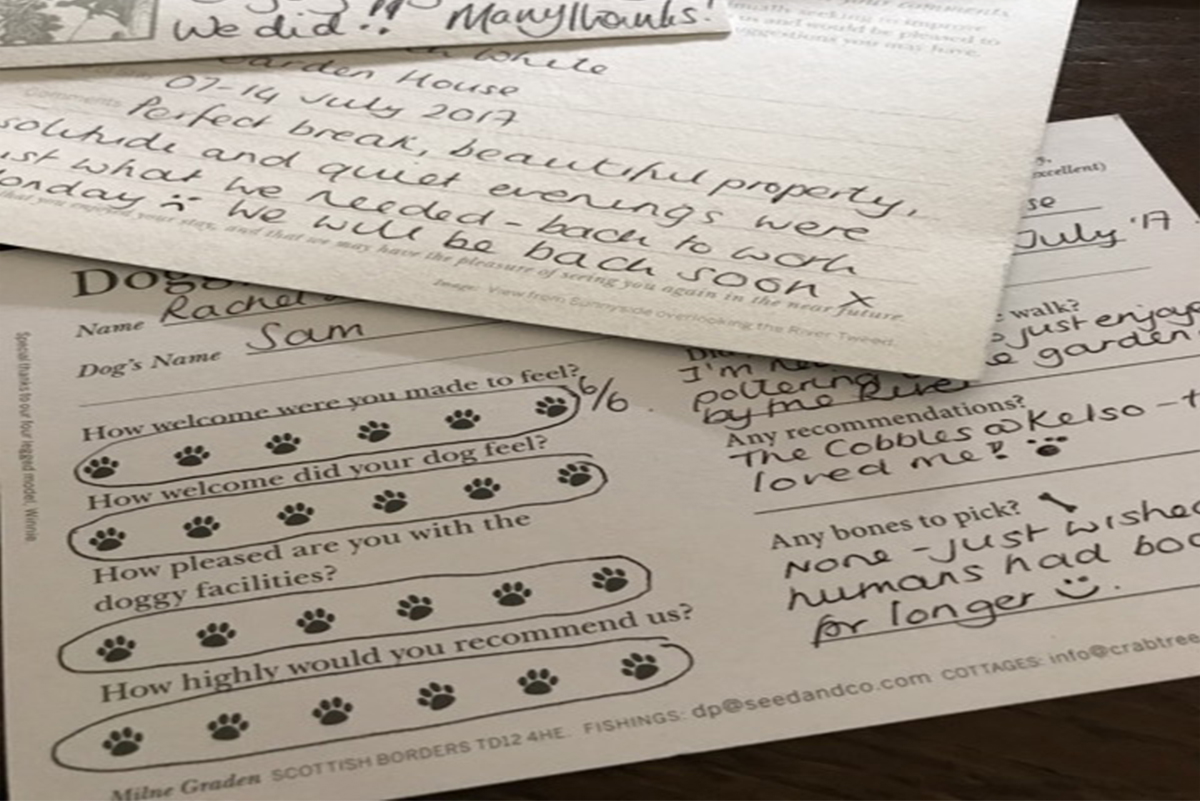 We did!! Many thanks!
your comments
us and would be pleased to
you may have.
White
Garden House
07-14 July 2017
Comments Perfect break, beautiful property,
solitude and quiet evenings were
just what we needed - back to work
Monday :( We will be back soon x
that you enjoyed your stay, and that we may have the pleasure of seeing you again in the near future.
Image: View from Sunnyside overlooking the River Tweed.
excellent)
se
July '17
Dogg
Name Rachel
Dog's Name Sam
How welcome were you made to feel?
6/6
How welcome did your dog feel?
How pleased are you with the
doggy facilities?
How highly would you recommend us?
walk?
just enjoye
I'm
pottering garden
by the River
Any recommendations?
The Cobbles @ Kelso - t
loved me!!
Any bones to pick?
None - just wished
humans had boo
for longer :)
Milne Graden SCOTTISH BORDERS TD12 4HE. FISHINGS: dp@seedandco.com COTTAGES: info@crabtree
Special thanks to our four legged model, Winnie.